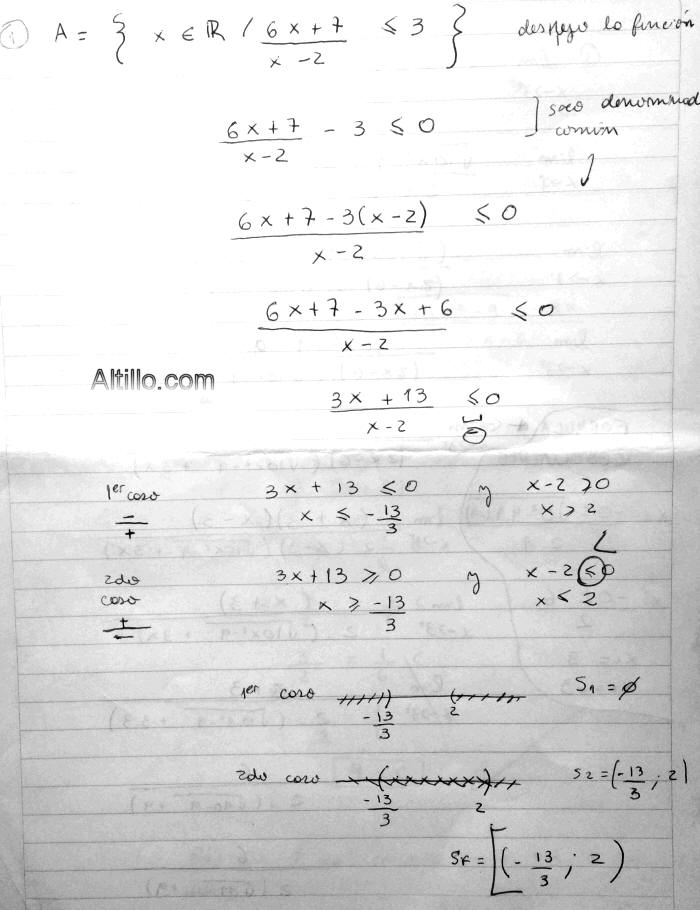 1) A = { x ∈ ℝ / (6x + 7)/(x - 2) ≤ 3 } despejo la función
(6x + 7)/(x - 2) - 3 ≤ 0 ] saco denominad común
(6x + 7 - 3(x - 2))/(x - 2) ≤ 0
(6x + 7 - 3x + 6)/(x - 2) ≤ 0
Altillo.com
(3x + 13)/(x - 2) ≤ 0
⊖
1er caso -/+ 3x + 13 ≤ 0 y x - 2 > 0
x ≤ -13/3 x > 2
<
2do caso +/- 3x + 13 ≥ 0 y x - 2 ≤ 0
x ≥ -13/3 x < 2
1er caso -13/3 2 S1 = ∅
2do caso -13/3 2 S2 = (-13/3 ; 2)
SF = [(-13/3 ; 2)